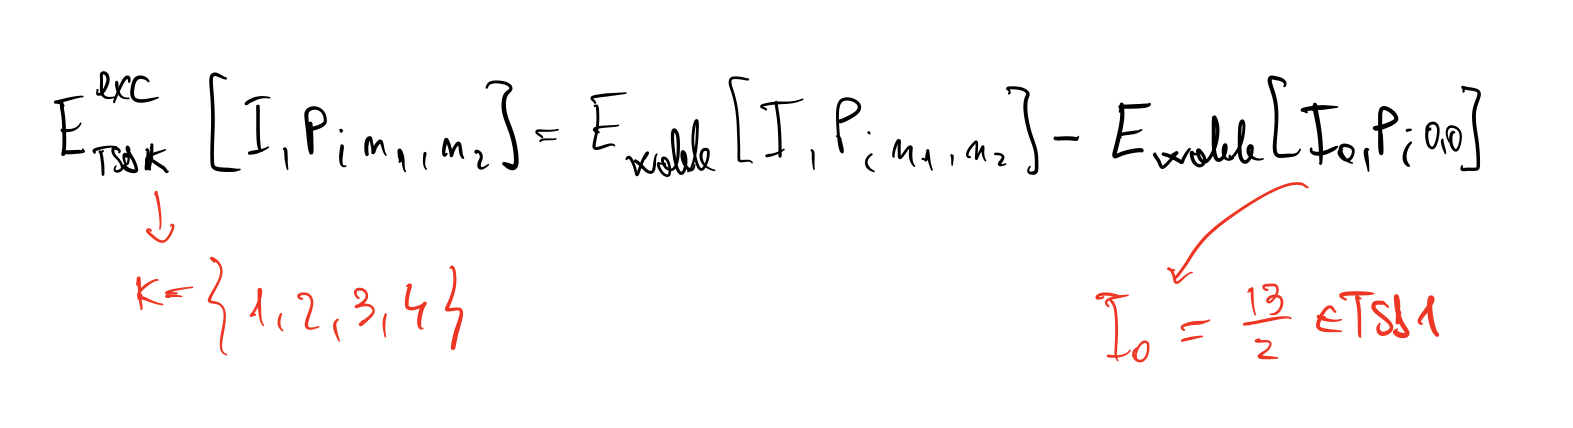 E^{exc}_{TSDK} [I, P; n_1, n_2] = E_{wobble} [I, P; n_1, n_2] - E_{wobble} [I_0, P; 0,0]
K = {1, 2, 3, 4}
I_0 = 13/2 ∈ TSD1